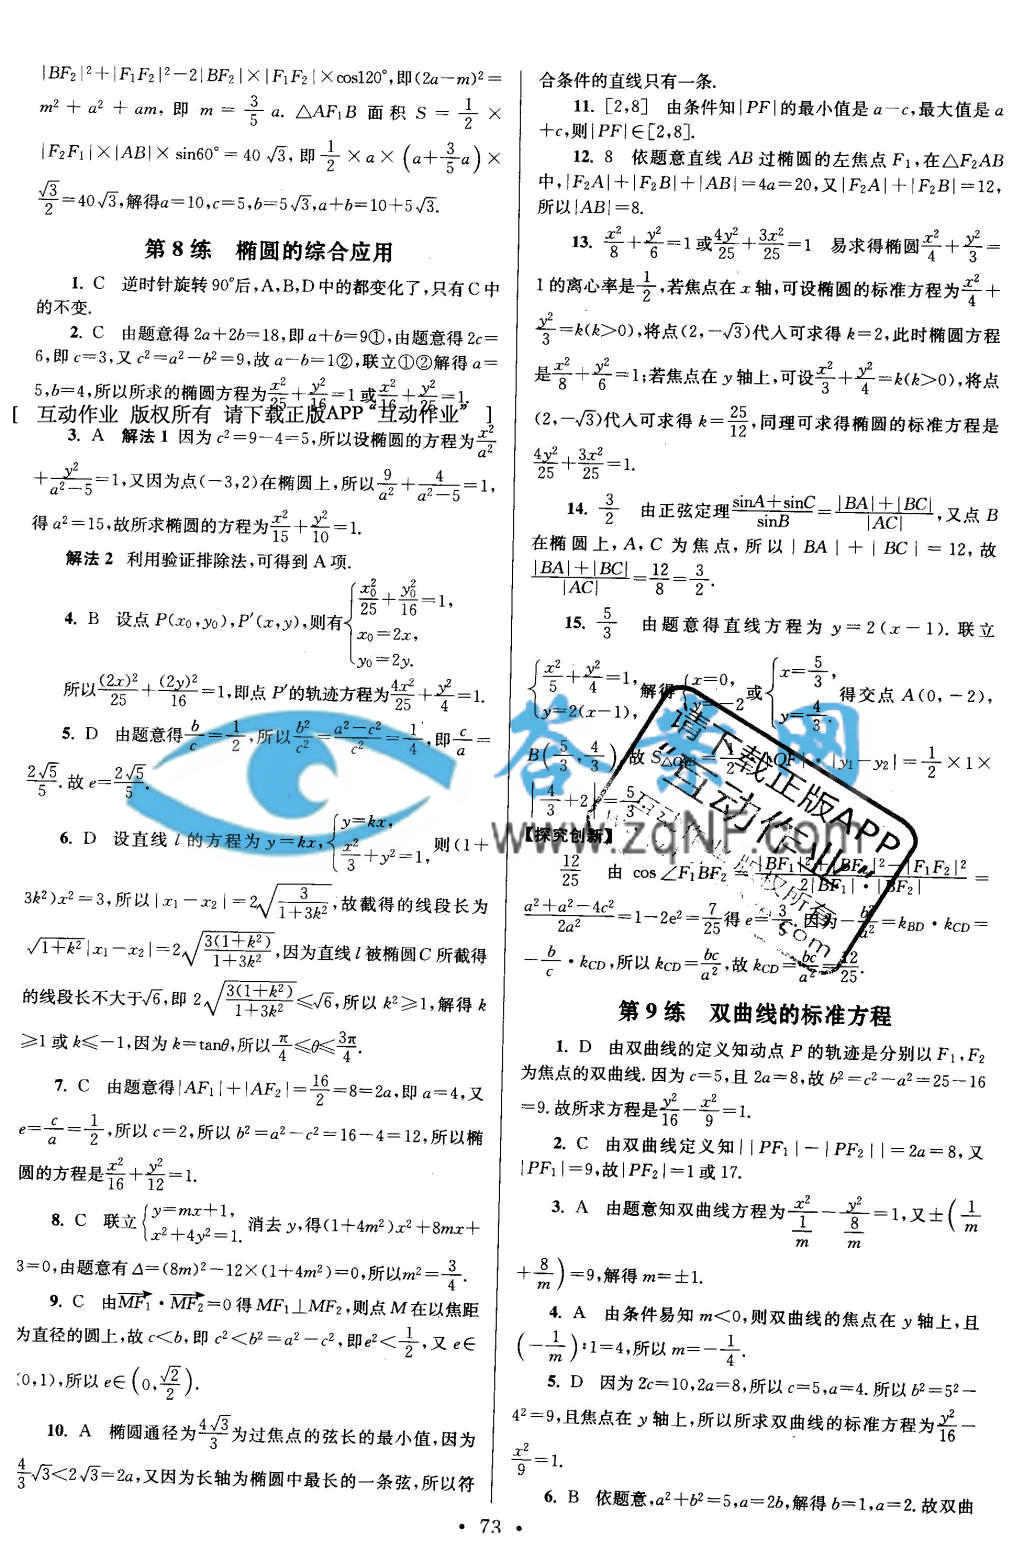 |BF₂|²+|F₁F₂|²-2|BF₂|×|F₁F₂|×cos120°,即(2a-m)²=
m²+a²+am,即 m=3/5 a.△AF₁B 面积 S=1/2×
|F₂F₁|×|AB|×sin60°=40√3,即1/2×a×(a+3/5 a)×
√3/2=40√3,解得a=10,c=5,b=5√3,a+b=10+5√3.
第8练 椭圆的综合应用
1. C 逆时针旋转90°后,A,B,D中的都变化了,只有C中
的不变.
2. C 由题意得2a+2b=18,即a+b=9①,由题意得2c=
6,即c=3,又c²=a²-b²=9,故a-b=1②,联立①②解得a=
5,b=4,所以所求的椭圆方程为x²/25+y²/16=1或x²/16+y²/25=1.
[ 互动作业 版权所有 请下载正版APP“互动作业” ]
3. A 解法1 因为c²=9-4=5,所以设椭圆的方程为x²/a²
+y²/(a²-5)=1,又因为点(-3,2)在椭圆上,所以9/a²+4/(a²-5)=1,
得a²=15,故所求椭圆的方程为x²/15+y²/10=1.
解法2 利用验证排除法,可得到A项.
4. B 设点P(x₀,y₀),P′(x,y),则有{x₀²/25+y₀²/16=1,
x₀=2x,
y₀=2y.
所以(2x)²/25+(2y)²/16=1,即点P′的轨迹方程为4x²/25+y²/4=1.
5. D 由题意得b/c=1/2,所以b²/c²=(a²-c²)/c²=1/4,即c/a=
2√5/5.故e=2√5/5.
6. D 设直线l的方程为y=kx,{y=kx, x²/3+y²=1,则(1+
3k²)x²=3,所以|x₁-x₂|=2√(3/(1+3k²)),故截得的线段长为
√(1+k²)|x₁-x₂|=2√(3(1+k²)/(1+3k²)),因为直线l被椭圆C所截得
的线段长不大于√6,即2√(3(1+k²)/(1+3k²))≤√6,所以k²≥1,解得k
≥1或k≤-1,因为k=tanθ,所以π/4≤θ≤3π/4.
7. C 由题意得|AF₁|+|AF₂|=16/2=8=2a,即a=4,又
e=c/a=1/2,所以c=2,所以b²=a²-c²=16-4=12,所以椭
圆的方程是x²/16+y²/12=1.
8. C 联立{y=mx+1, x²+4y²=1.消去y,得(1+4m²)x²+8mx+
3=0,由题意有Δ=(8m)²-12×(1+4m²)=0,所以m²=3/4.
9. C 由MF₁·MF₂=0得MF₁⊥MF₂,则点M在以焦距
为直径的圆上,故c<b,即c²<b²=a²-c²,即e²<1/2,又e∈
(0,1),所以e∈(0,√2/2).
10. A 椭圆通径为4√3/3为过焦点的弦长的最小值,因为
4/3√3<2√3=2a,又因为长轴为椭圆中最长的一条弦,所以符
合条件的直线只有一条.
11. [2,8] 由条件知|PF|的最小值是a-c,最大值是a
+c,则|PF|∈[2,8].
12. 8 依题意直线AB过椭圆的左焦点F₁,在△F₂AB
中,|F₂A|+|F₂B|+|AB|=4a=20,又|F₂A|+|F₂B|=12,
所以|AB|=8.
13. x²/8+y²/6=1或4y²/25+3x²/25=1 易求得椭圆x²/4+y²/3=
1的离心率是1/2,若焦点在x轴,可设椭圆的标准方程为x²/4+
y²/3=k(k>0),将点(2,-√3)代人可求得k=2,此时椭圆方程
是x²/8+y²/6=1;若焦点在y轴上,可设x²/3+y²/4=k(k>0),将点
(2,-√3)代人可求得k=25/12,同理可求得椭圆的标准方程是
4y²/25+3x²/25=1.
14. 3/2 由正弦定理(sinA+sinC)/sinB=(|BA|+|BC|)/|AC|,又点B
在椭圆上,A,C为焦点,所以|BA|+|BC|=12,故
(|BA|+|BC|)/|AC|=12/8=3/2.
15. 5/3 由题意得直线方程为y=2(x-1).联立
{x²/5+y²/4=1, y=2(x-1),解得{x=0, y=-2或{x=5/3, y=4/3.得交点A(0,-2),
B(5/3,4/3),故S△OAB=1/2·|OF|·|y₁-y₂|=1/2×1×
|4/3+2|=5/3.
【探究创新】
12/25 由cos∠F₁BF₂=(|BF₁|²+|BF₂|²-|F₁F₂|²)/(2|BF₁|·|BF₂|)=
(a²+a²-4c²)/2a²=1-2e²=7/25得e=3/5.因为-b²/a²=kBD·kCD=
-b/c·kCD,所以kCD=bc/a²,故kCD=bc/a²=12/25.
第9练 双曲线的标准方程
1. D 由双曲线的定义知动点P的轨迹是分别以F₁,F₂
为焦点的双曲线.因为c=5,且2a=8,故b²=c²-a²=25-16
=9.故所求方程是y²/16-x²/9=1.
2. C 由双曲线定义知||PF₁|-|PF₂||=2a=8,又
|PF₁|=9,故|PF₂|=1或17.
3. A 由题意知双曲线方程为x²/(1/m)-y²/(8/m)=1,又±(1/m
+8/m)=9,解得m=±1.
4. A 由条件易知m<0,则双曲线的焦点在y轴上,且
(-1/m):1=4,所以m=-1/4.
5. D 因为2c=10,2a=8,所以c=5,a=4.所以b²=5²-
4²=9,且焦点在y轴上,所以所求双曲线的标准方程为y²/16-
x²/9=1.
6. B 依题意,a²+b²=5,a=2b,解得b=1,a=2.故双曲
• 73 •
答案网
www.zqNF.com
请下载正版APP
“互动作业”